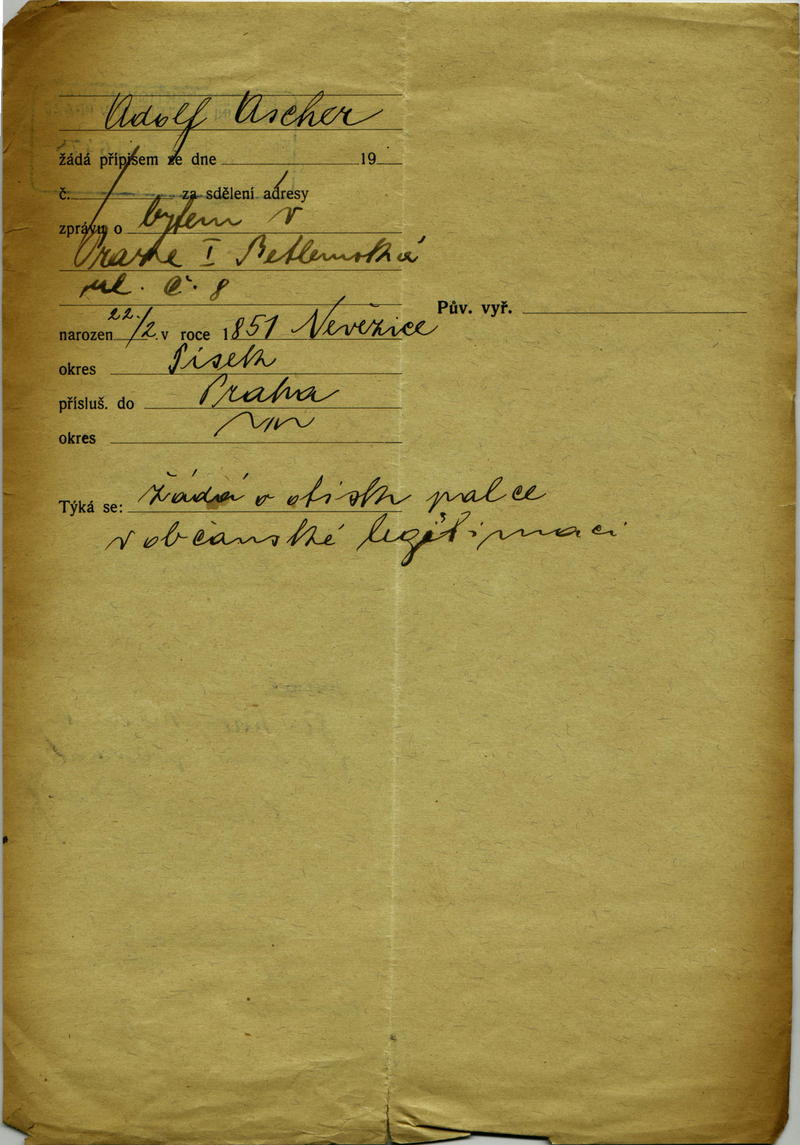 Adolf Ascher
žádá přípisem ze dne 19
č. za sdělení adresy
zprávu o bytem v
Praze I Betlemská
ul. č. 8
Pův. vyř.
narozen 22./2. v roce 1851 Nevěžice
okres Písek
přísluš. do Praha
okres
Týká se: žádá o otisk palce
v občanské legitimaci